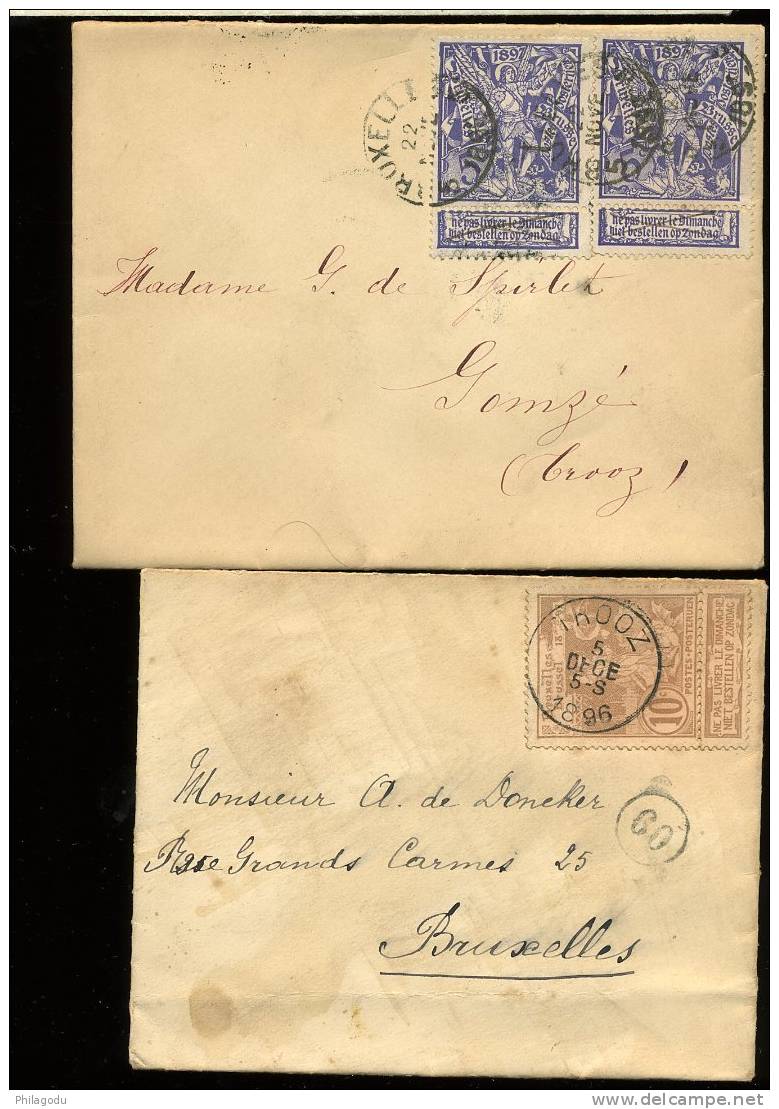 1897
1897
ne pas livrer le Dimanche
niet bestellen op Zondag
ne pas livrer le Dimanche
niet bestellen op Zondag
BRUXELL
22
Madame G. de Spirlet
Gomzé
(Trooz)
TROOZ
5
DECE
5-S
1896
10
POSTES-POSTERIJEN
NE PAS LIVRER LE DIMANCHE
NIET BESTELLEN OP ZONDAG
Monsieur A. de Doncker
Rue Grands Carmes 25
Bruxelles
60
Philagodu
delcampe.net